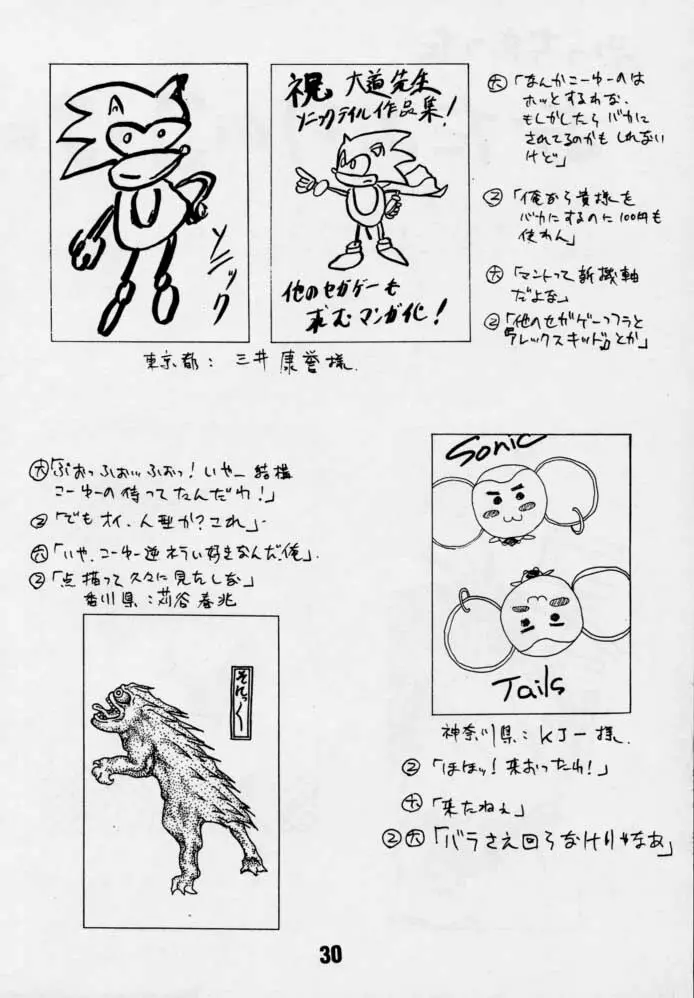 ソニック
祝 大道先生
ソニックテイル作品集!
他のセガゲーも
求むマンガ化!
東京都: 三井康誉様
大「なんかこーゆーのは
ホッとするわな.
もしかしたらバカに
されてるのかもしれない
けど」
2「俺が貴様を
バカにするのに100円も
使わん」
大「マントって新機軸
だよな」
2「他のセガゲーっつうと
『アレックスキッド』とか」
大「ぶおっふおっふおっ!いやー結構
こーゆーの待ってたんだわ!」
2「でもオイ、人型か?これ」
大「いや、こーゆー逆ネライ好きなんだ俺」.
2「点描って久々に見たしな」
香川県:苅谷春兆
そにっく
Sonic
Tails
神奈川県: KJー様.
2「ほほッ!来おったわ!」
大「来たねぇ」
2大「バラさえ回らなけりゃなあ」
30